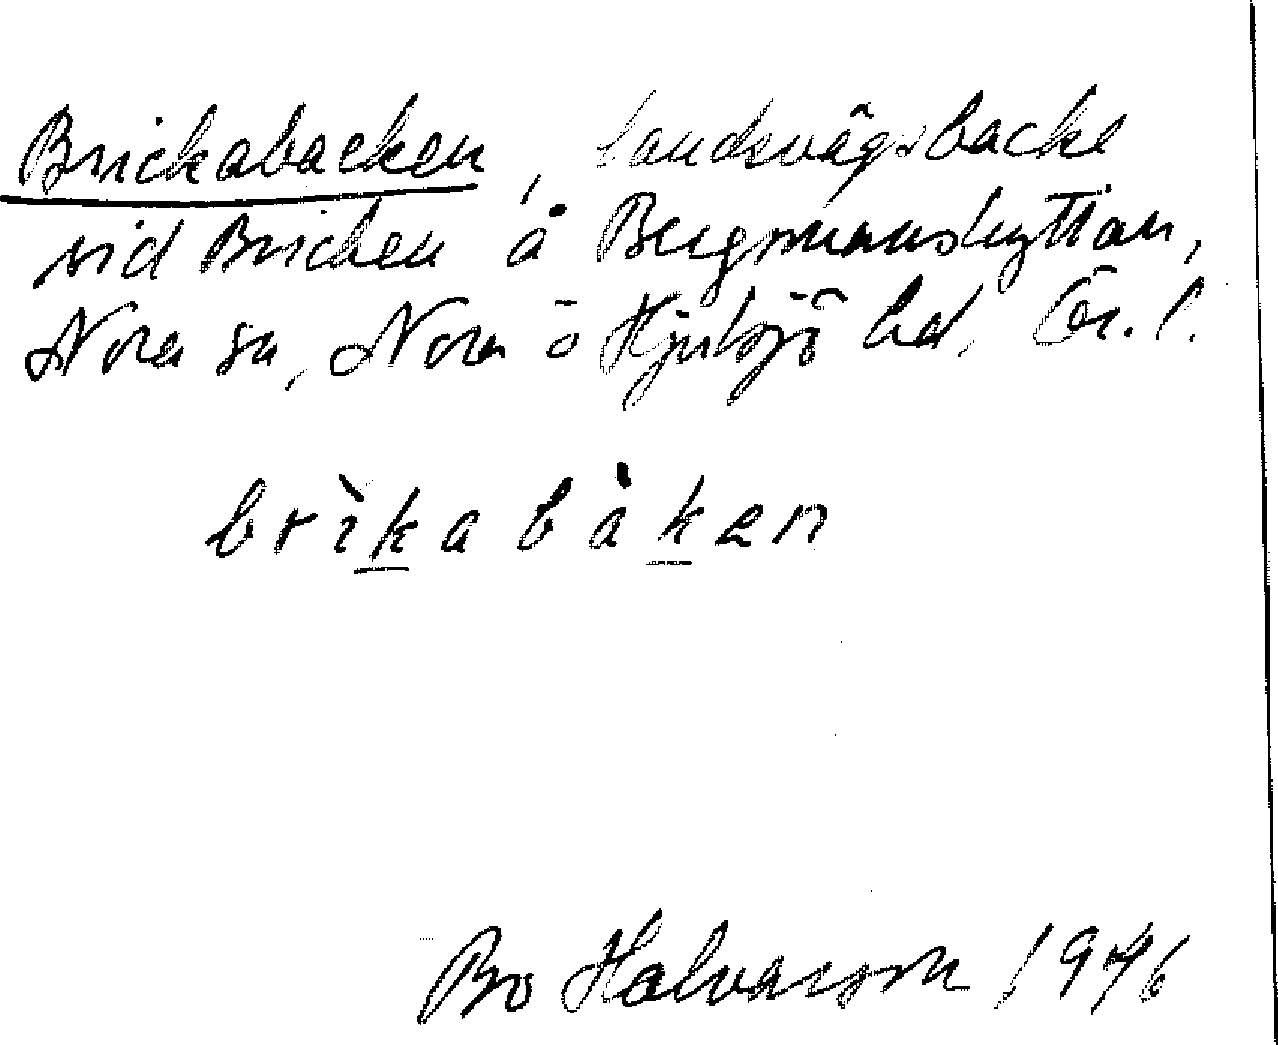 Brickabacken, landsvägsbacke
vid Bricken å Bergsmanshyttan,
Nora sn, Nora o Hjulsjö hd, Ör. l.
brìkabàken
Bo Halvarsson 1946